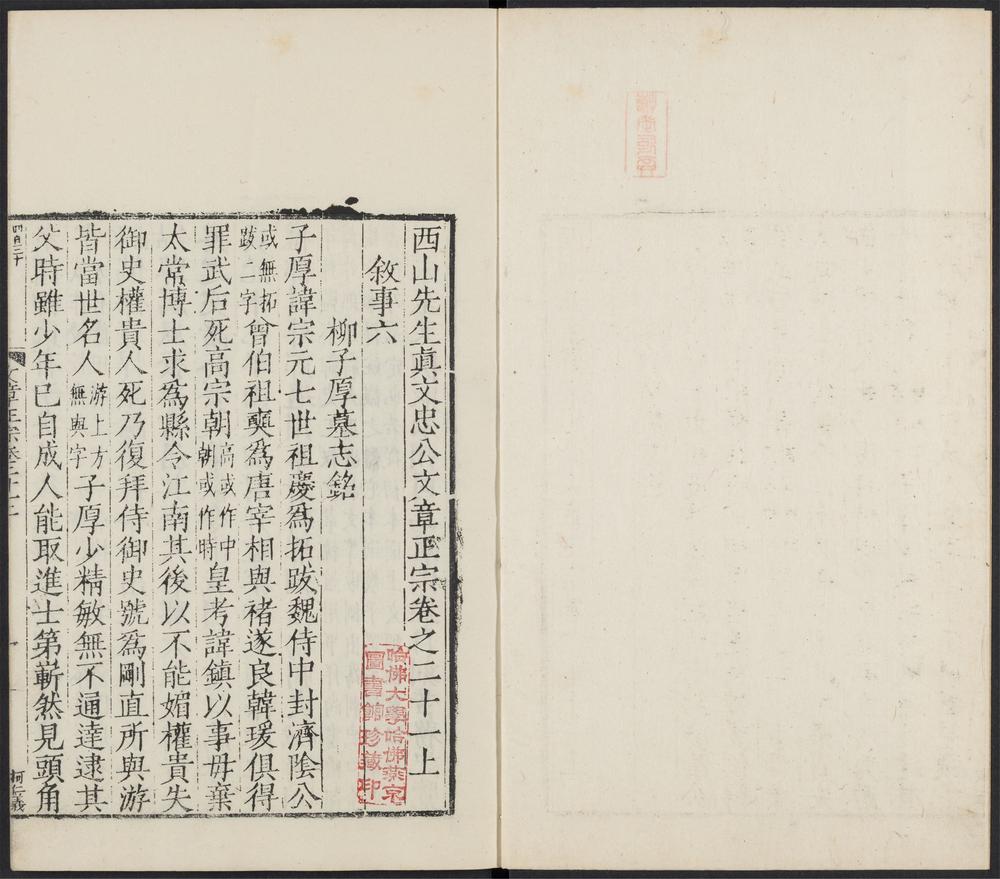 西山先生眞文忠公文章正宗卷之二十一上
敘事六
柳子厚墓志銘
子厚諱宗元七世祖慶爲拓跋魏侍中封濟隂公
或無拓跋二字曾伯祖奭爲唐宰相與褚遂良韓瑗俱得
罪武后死高宗朝高或作中朝或作時皇考諱鎮以事毋棄
太常博士求爲縣令江南其後以不能媚權貴失
御史權貴人死乃復拜侍御史號爲剛直所與游
皆當世名人游上方無與字子厚少精敏無不通達逮其
父時雖少年已自成人能取進士第嶄然見頭角
文章正宗卷二十一
柯仁義
哈佛大學哈佛燕京
圖書館珍藏印